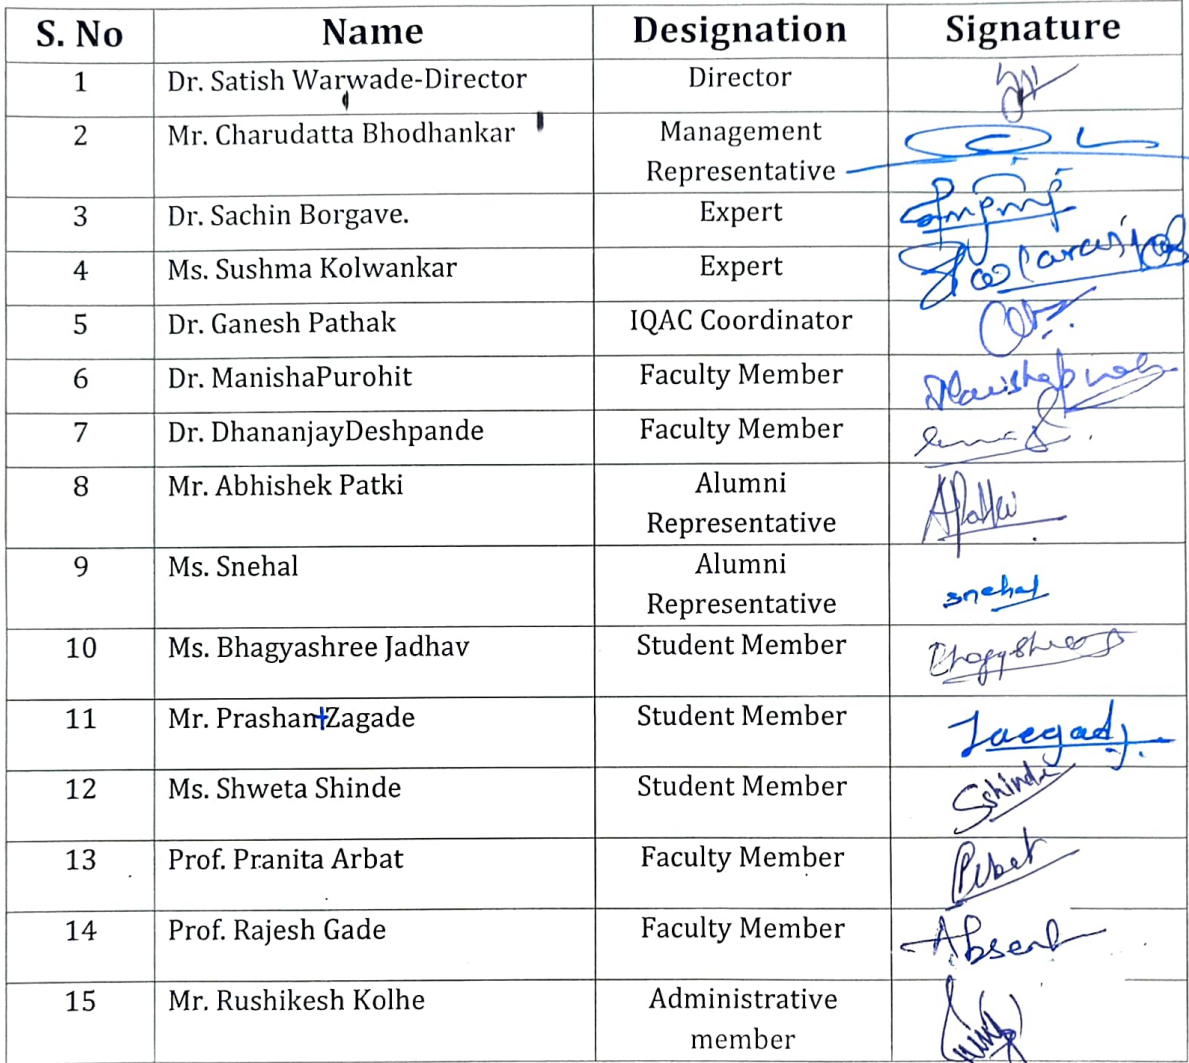 S. No Name Designation Signature
1 Dr. Satish Warwade-Director Director
2 Mr. Charudatta Bhodhankar Management
Representative
3 Dr. Sachin Borgave. Expert
4 Ms. Sushma Kolwankar Expert
5 Dr. Ganesh Pathak IQAC Coordinator
6 Dr. ManishaPurohit Faculty Member
7 Dr. DhananjayDeshpande Faculty Member
8 Mr. Abhishek Patki Alumni
Representative APatki
9 Ms. Snehal Alumni
Representative snehal
10 Ms. Bhagyashree Jadhav Student Member
11 Mr. PrashantZagade Student Member
12 Ms. Shweta Shinde Student Member Sshinde
13 Prof. Pranita Arbat Faculty Member
14 Prof. Rajesh Gade Faculty Member Absent
15 Mr. Rushikesh Kolhe Administrative
member